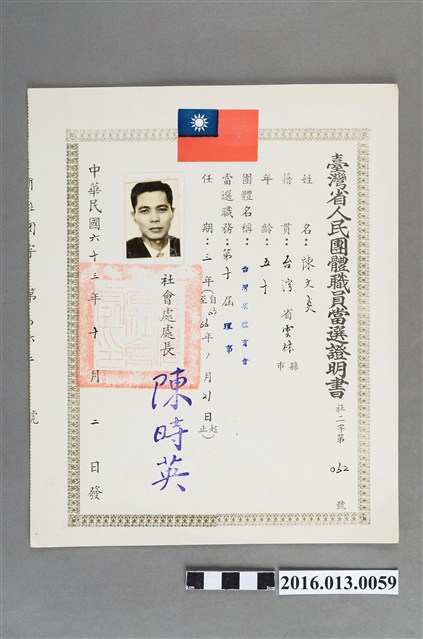 臺灣省人民團體職員當選證明書
社二字第 052 號
姓名：陳文奐
籍貫：台灣省雲林縣市
年齡：五十
團體名稱：台灣省體育會
當選職務：第十屆 理事
任期：三年（自63至66年1月21日起止）
社會處處長 陳時英
中華民國六十三年十月二日發
號
2016.013.0059